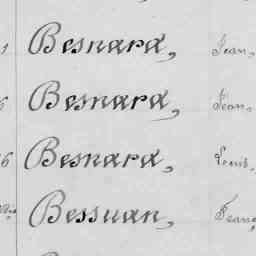 1 Besnard, Jean,
Besnard, Jean,
6 Besnard, Louis,
Bessuan, Franç